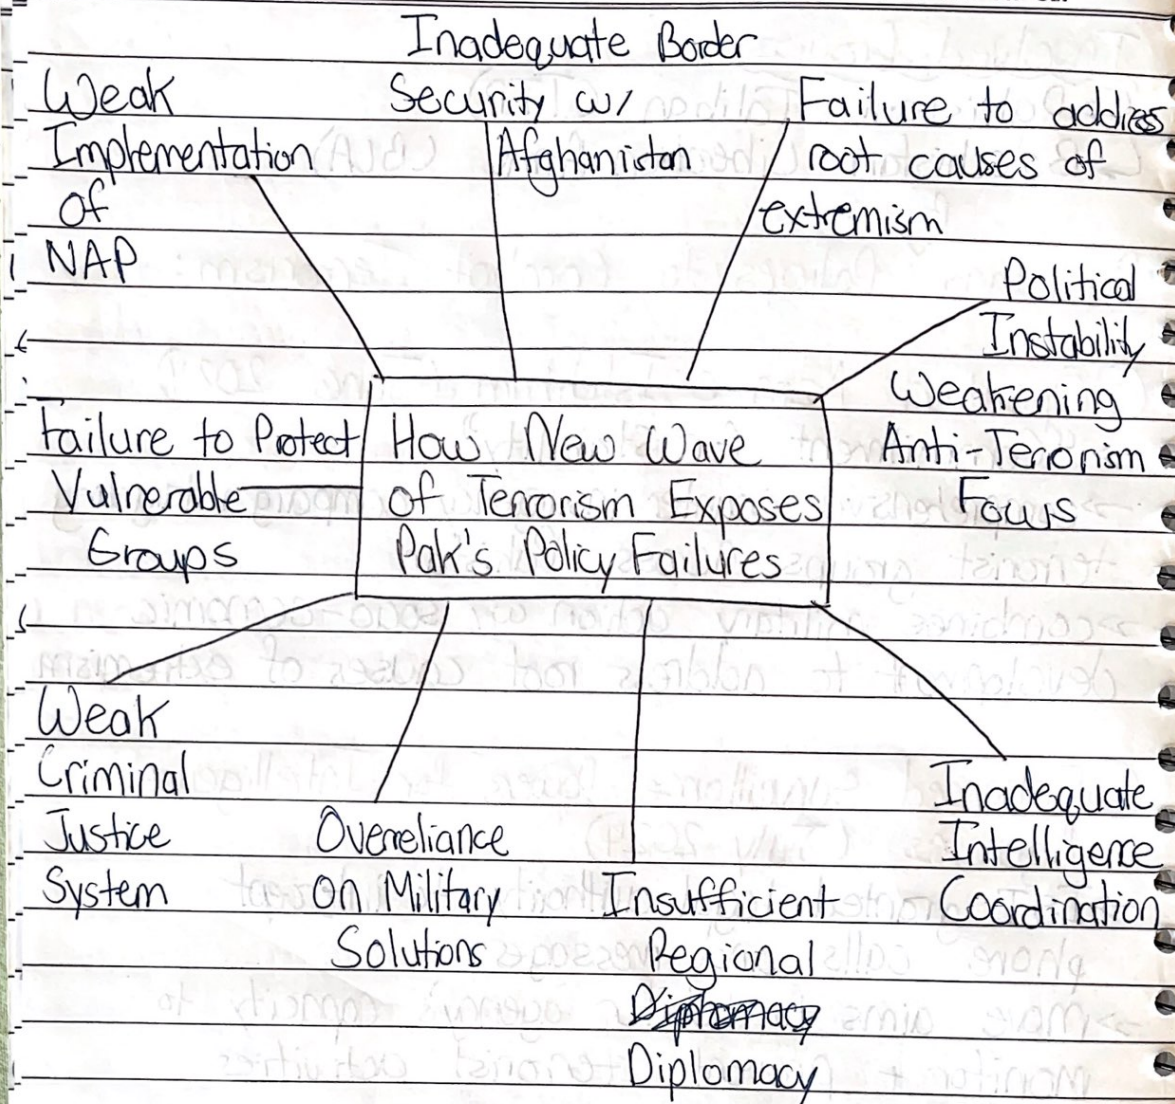 Inadequate Border
Security w/
Afghanistan
Weak
Implementation
of
NAP
Failure to address
root causes of
extremism
Political
Instability
Weakening
Anti-Terrorism
Focus
Failure to Protect
Vulnerable
Groups
How New Wave
of Terrorism Exposes
Pak's Policy Failures
Weak
Criminal
Justice
System
Overreliance
on Military
Solutions
Insufficient
Regional
Diplomacy
Diplomacy
Inadequate
Intelligence
Coordination